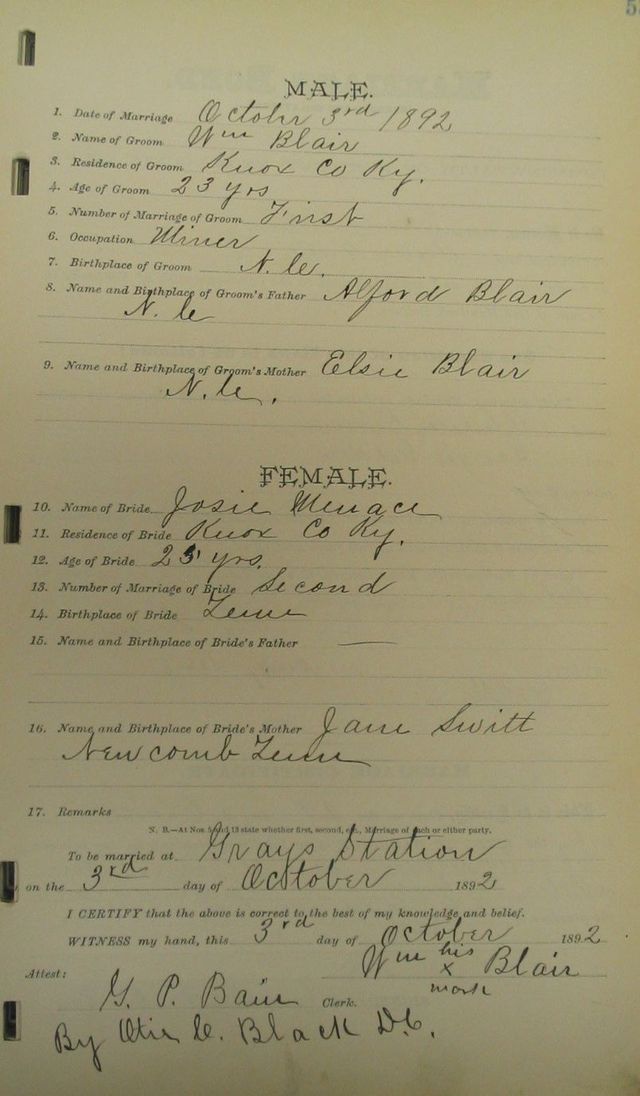 5
MALE.
1. Date of Marriage October 3rd 1892
2. Name of Groom Wm Blair
3. Residence of Groom Knox Co Ky.
4. Age of Groom 23 yrs
5. Number of Marriage of Groom First
6. Occupation Miner
7. Birthplace of Groom N.C.
8. Name and Birthplace of Groom's Father Alford Blair
N.C
9. Name and Birthplace of Groom's Mother Elsie Blair
N.C.
FEMALE.
10. Name of Bride Josie Menace
11. Residence of Bride Knox Co Ky.
12. Age of Bride 23 yrs.
13. Number of Marriage of Bride Second
14. Birthplace of Bride Tenn
15. Name and Birthplace of Bride's Father —
16. Name and Birthplace of Bride's Mother Jane Switt
Newcomb Tenn
17. Remarks
N. B.—At Nos. 5 and 13 state whether first, second, etc., Marriage of each or either party.
To be married at Grays Station
on the 3rd day of October 1892
I CERTIFY that the above is correct to the best of my knowledge and belief.
WITNESS my hand, this 3rd day of October 1892
Wm his x mark Blair
Attest:
G. P. Bain Clerk.
By Otis C. Black D.C.